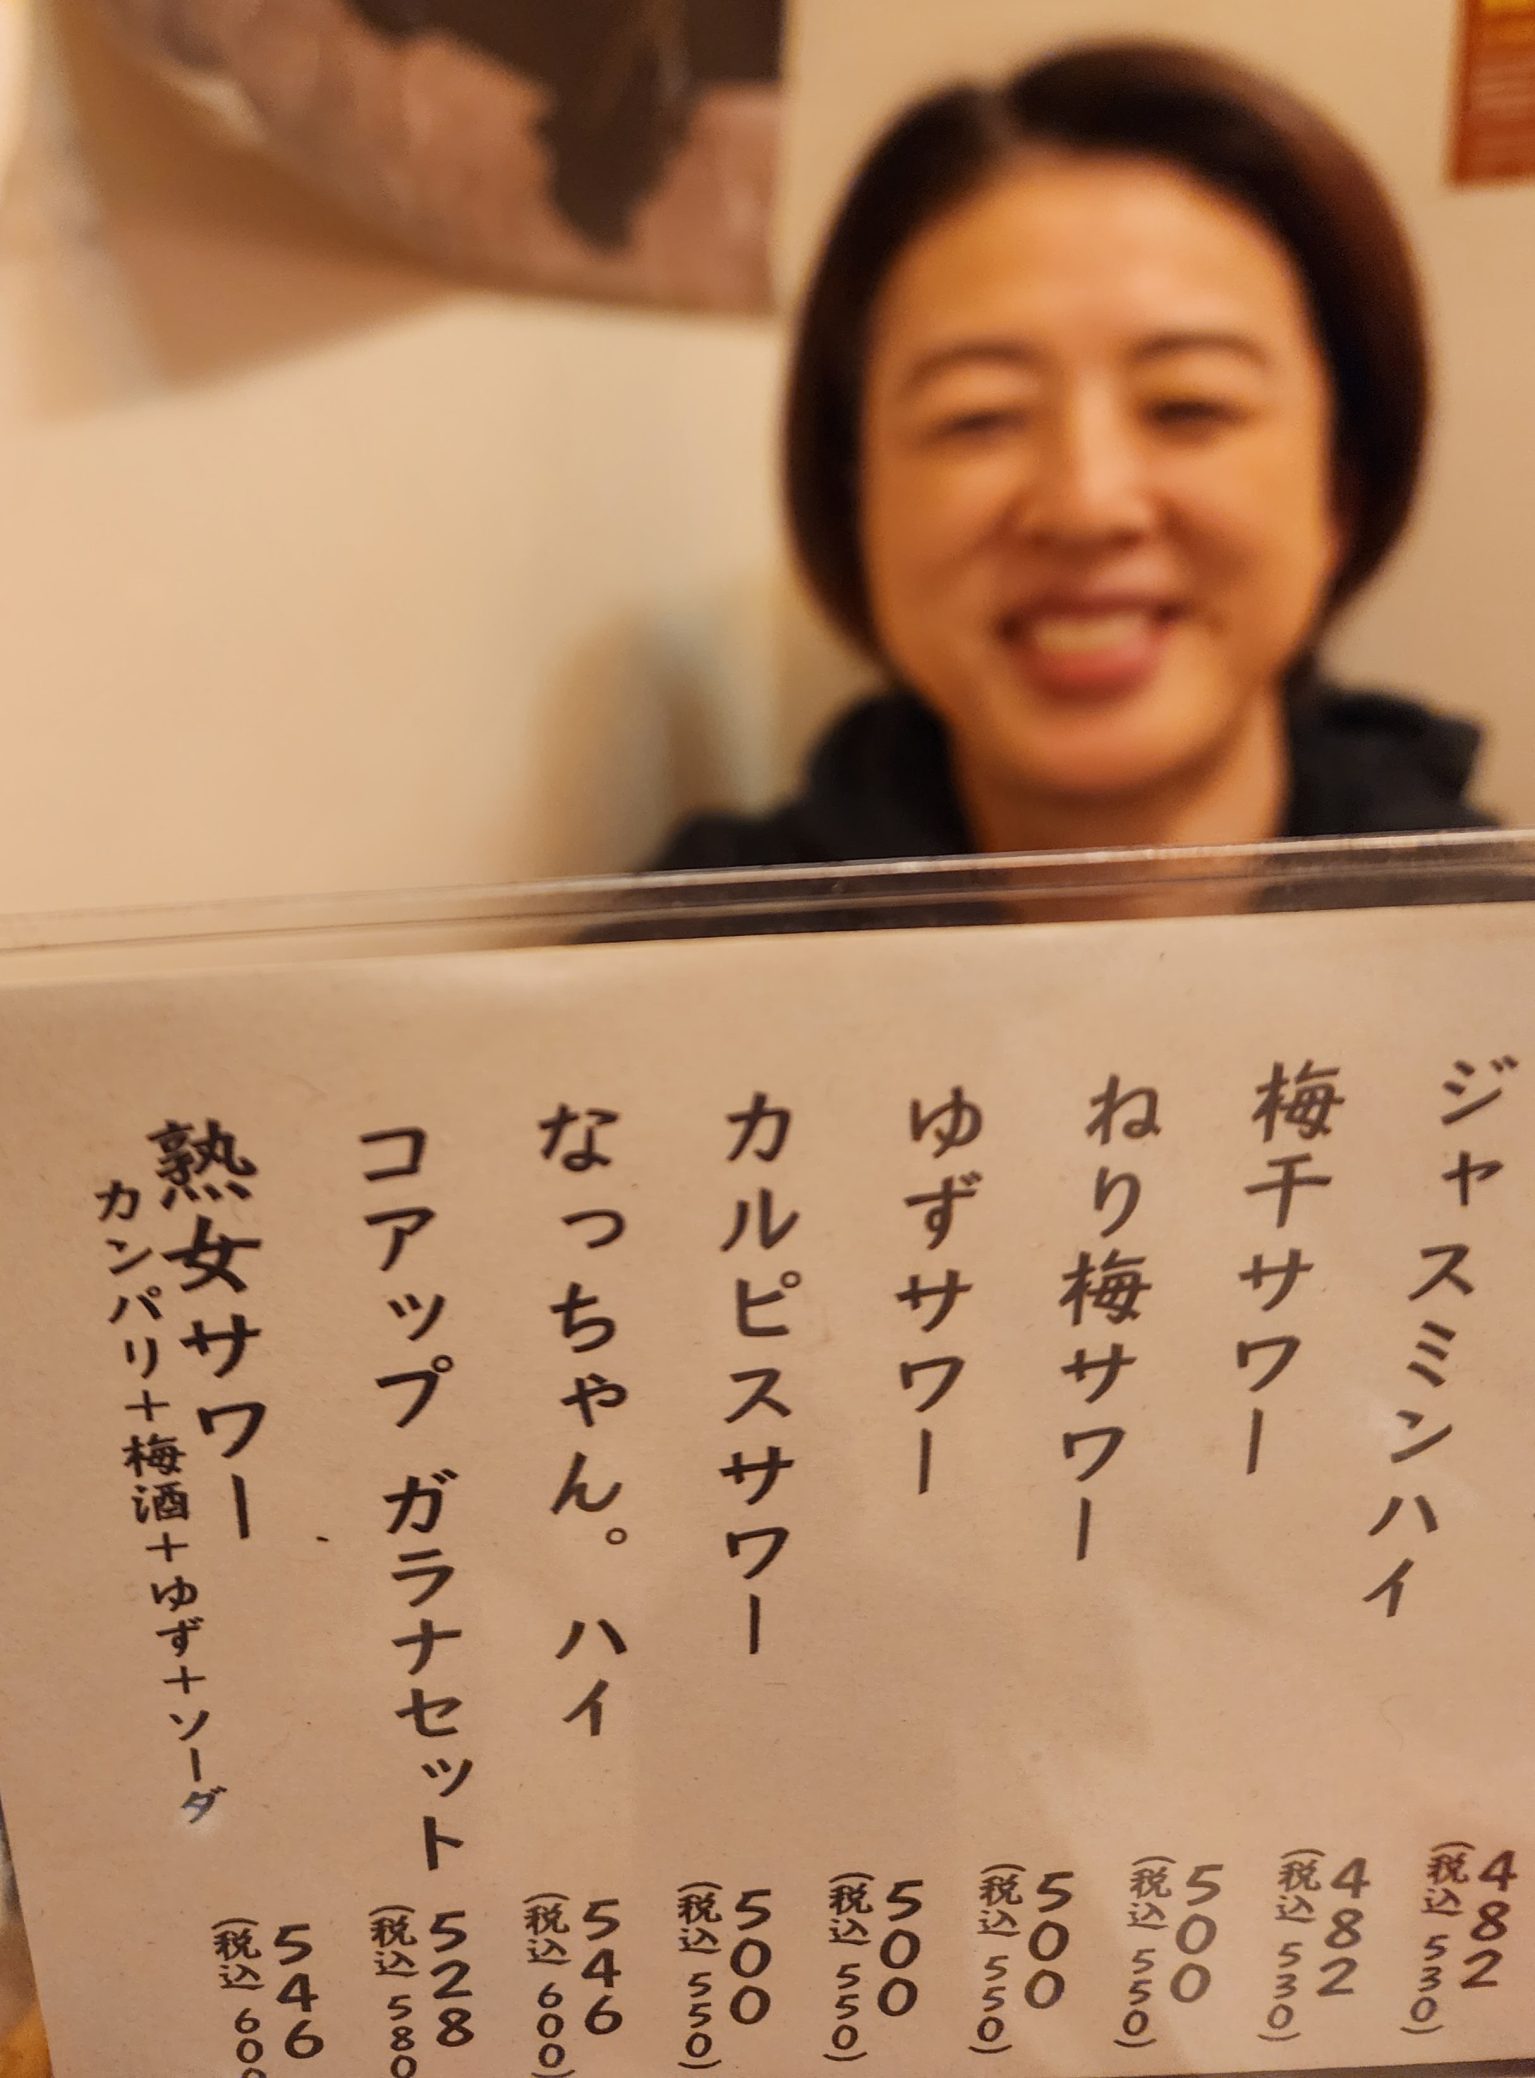 ジャスミンハイ 482 (税込 530)
梅干サワー 482 (税込 530)
ねり梅サワー 500 (税込 550)
ゆずサワー 500 (税込 550)
カルピスサワー 500 (税込 550)
なっちゃん。ハイ 546 (税込 600)
コアップ ガラナセット 528 (税込 580
熟女サワー 546 (税込 600
カンパリ+梅酒+ゆず+ソーダ